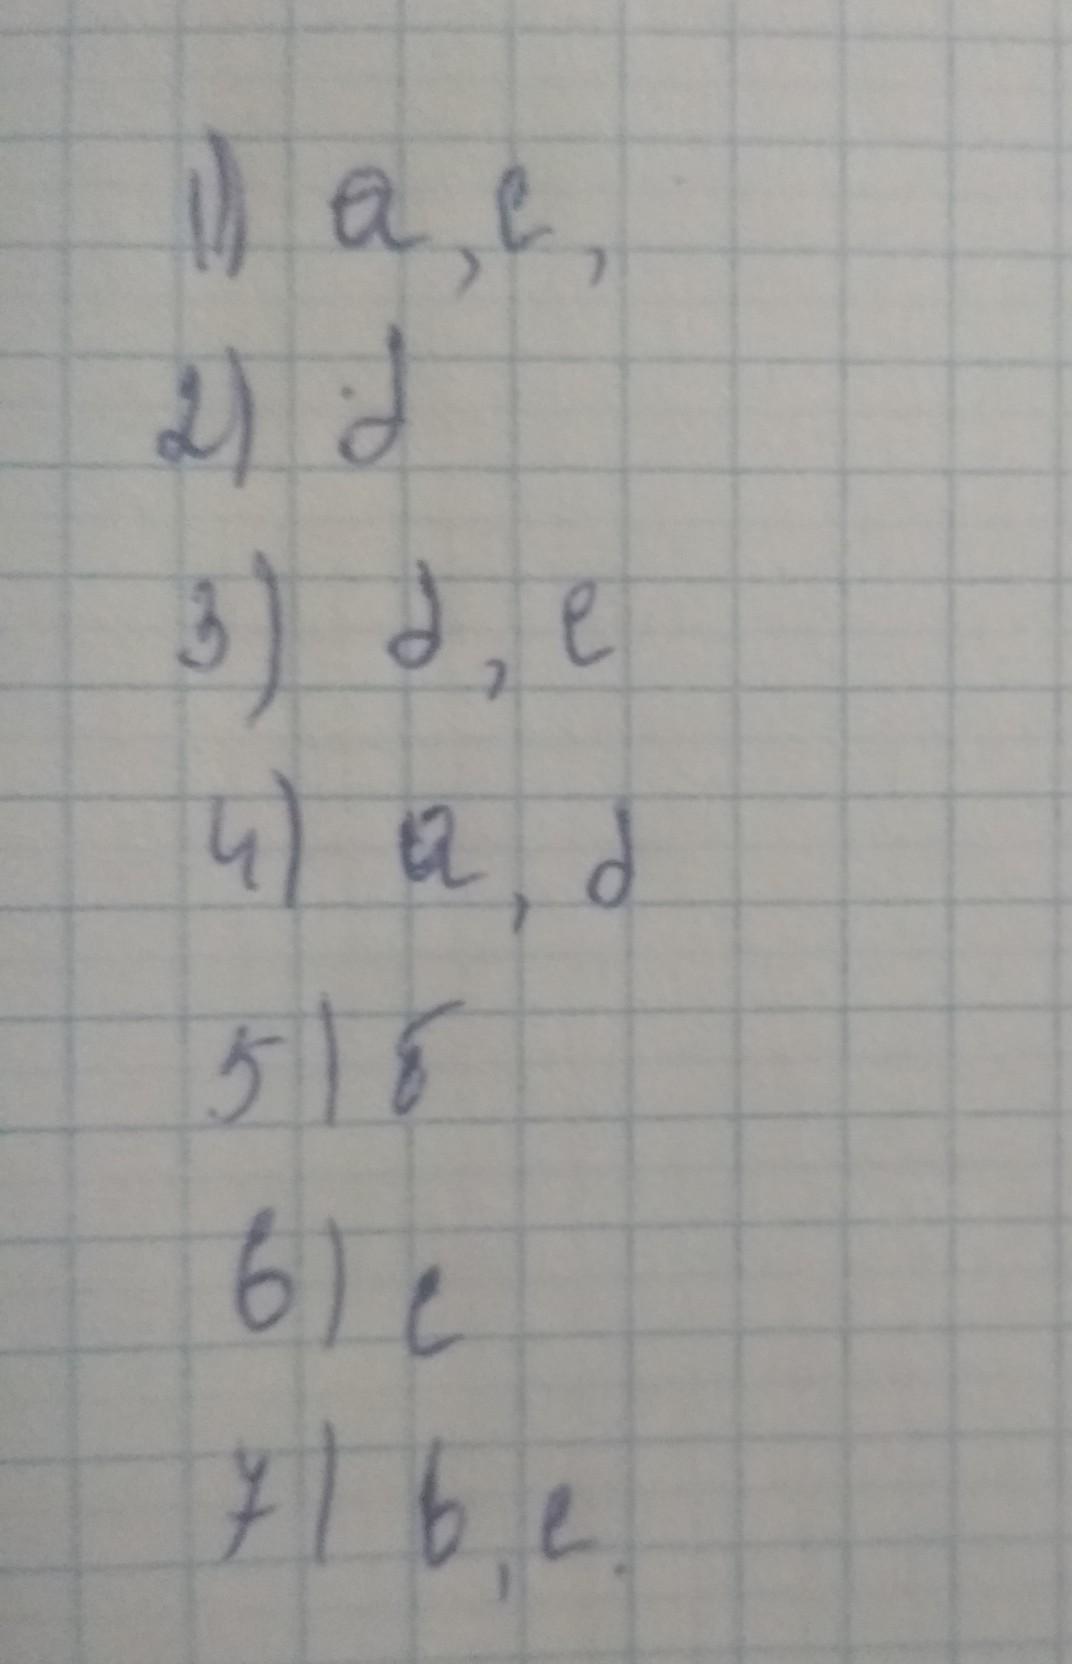 1) a, e,
2) d
3) d, e
4) a, d
5) б
6) e
7) b, e.